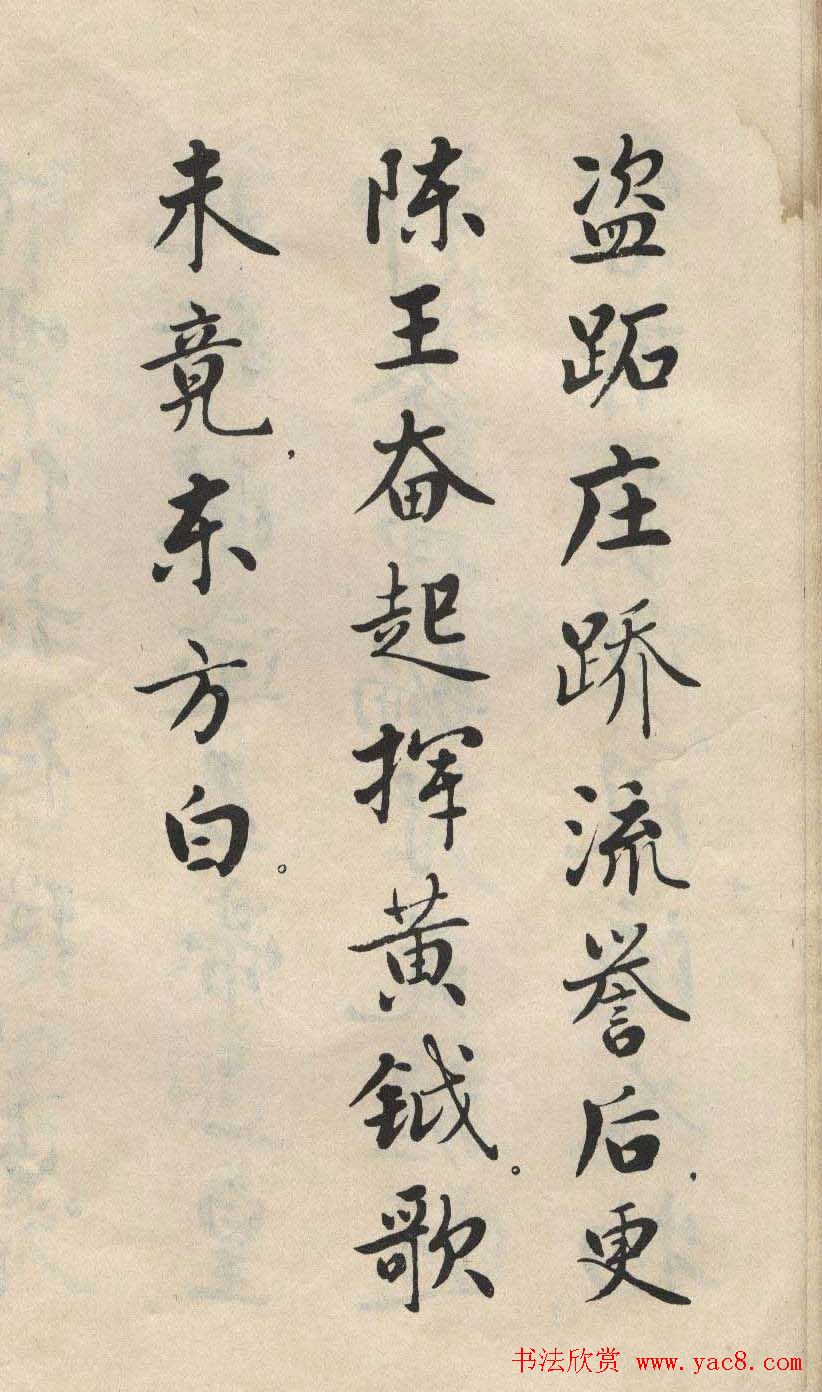 盗跖庄蹻流誉后，更
陈王奋起挥黄钺。歌
未竟，东方白。
书法欣赏 www.yac8.com